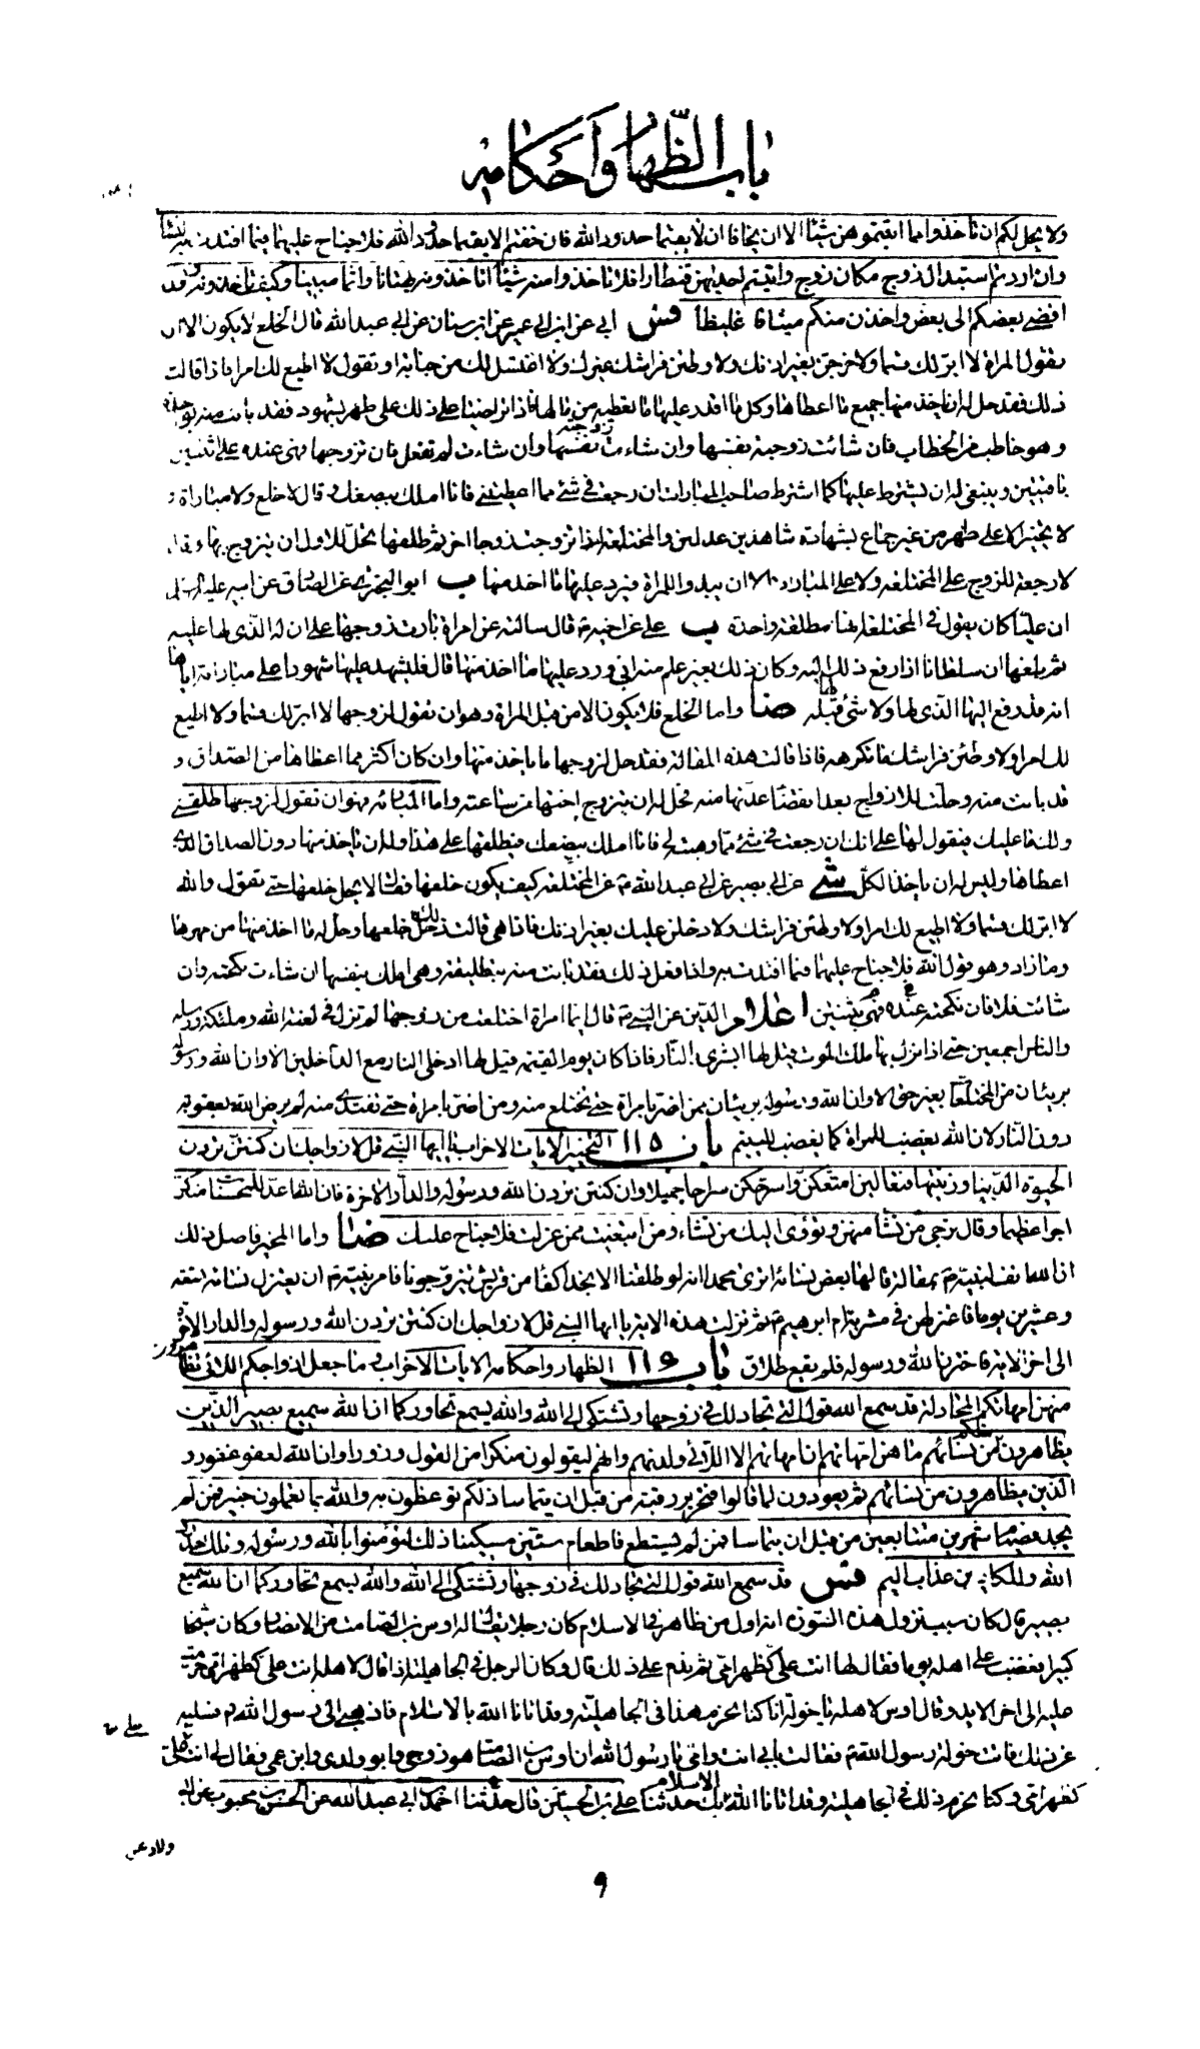 باب الظهار وأحكامه
ولا يحل لكم ان تأخذوا مما اتيتموهن شيئا الا ان يخافا ان لا يقيما حدود الله فان خفتم الا يقيما حدود الله فلا جناح عليهما فيما افتدت به النساء
وان اردتم استبدال زوج مكان زوج واتيتم احديهن قنطارا فلا تاخذوا منه شيئا اتاخذونه بهتانا واثما مبينا وكيف تاخذونه وقد
افضى بعضكم الى بعض واخذن منكم ميثاقا غليظا فس ابي عن ابن ابي عمير عن ابن سنان عن ابي عبد الله قال الخلع لا يكون الا ان
تقول المراة لا ابر لك قسما ولاخرجن بغير اذنك ولاوطئن فراشك غيرك ولا اغتسل لك من جنابة او تقول لا اطيع لك امرا فاذا قالت
ذلك فقد حل له ان ياخذ منها جميع ما اعطاها وكل ما اقدر عليها ما تعطيه من مالها فاذا تراضيا على ذلك على طهر بشهود فقد بانت منه بواحدة
وهو خاطب من الخطاب فان شائت زوجته نفسها وان شاءت لم تفعل فان تزوجها فهى عنده على ثنتين
باقيتين وينبغى له ان يشترط عليها كما اشترط صاحب المبارات ان رجعت فى شئ مما اعطيتنى فانا املك ببضعك وقال لا خلع ولا مباراة و
لا تخيير الا على طهر من غير جماع بشهادة شاهدين عدلين والمختلعة اذا تزوجت زوجا اخر ثم طلقها يحل للاول ان يتزوج بها وقال
لا رجعة للزوج على المختلعة ولا على المباراة الا ان يبدو للمراة فيرد عليها ما اخذ منها ب ابو البخترى عن الصادق عن ابيه عليه السلام
ان عليا كان يقول فى المختلعة انها مطلقة واحدة ب على عن اخيه ع قال سالته عن امراة بارئت زوجها على ان له الذى لها عليه
ثم بلغها ان سلطانا اذا رفع ذلك اليه وكان ذلك بغير علم منه ابى ورد عليها ما اخذ منها قال فليشهد عليها شهودا على مباراته اياها
انه قد دفع اليها الذى لها ولا شئ لها قبله ضا واما الخلع فلا يكون الا من قبل المراة وهو ان تقول لزوجها لا ابر لك قسما ولا اطيع
لك امرا ولاوطئن فراشك ما تكرهه فاذا قالت هذه المقالة فقد حل لزوجها ما ياخذ منها وان كان اكثر مما اعطاها من الصداق و
قد بانت منه وحلت للازواج بعد انقضاء عدتها منه فحل له ان يتزوج اختها من ساعته واما المباراة فهو ان تقول لزوجها طلقنى
ولك ما عليك فيقول لها على انك ان رجعت فى شئ مما وهبته لى فانا املك ببضعك فيطلقها على هذا وله ان ياخذ منها دون الصداق الذى
اعطاها وليس له ان ياخذ الكل شى عن ابى بصير عن ابى عبد الله ع عن المختلعة كيف يكون خلعها فقال لا يحل خلعها حتى تقول والله
لا ابر لك قسما ولا اطيع لك امرا ولاوطئن فراشك ولادخلن عليك بغير اذنك فاذا هى قالت ذلك حل خلعها وحل له ما اخذ منها من مهرها
وما زاد وهو قول الله فلا جناح عليهما فيما افتدت به واذا فعل ذلك فقد بانت منه بتطليقة وهى املك بنفسها ان شاءت نكحته وان
شائت فلا فان نكحته فهى عنده على ثنتين اعلام الدين عن النبى ص قال ايما امراة اختلعت من زوجها لم تزل فى لعنة الله وملئكته ورسله
والناس اجمعين حتى اذا نزل بها ملك الموت قيل لها ابشرى بالنار فاذا كان يوم القيمة قيل لها ادخلى النار مع الداخلين الا وان الله ورسوله
بريئان من المختلعات بغير حق الا وان الله ورسوله بريئان ممن اضر بامراة حتى تختلع منه ومن اضر بامراة حتى تفتدى منه لم يرض الله بعقوبة
دون النار لان الله يغضب للمراة كما يغضب لليتيم باب ١١٥ التخيير الايات الاحزاب يا ايها النبى قل لازواجك ان كنتن تردن
الحيوة الدنيا وزينتها فتعالين امتعكن واسرحكن سراحا جميلا وان كنتن تردن الله ورسوله والدار الاخرة فان الله اعد للمحسنات منكن
اجرا عظيما وقال ترجى من تشا منهن وتؤوى اليك من تشاء ومن ابتغيت ممن عزلت فلا جناح عليك ضا واما المخير فاصل ذلك
ان الله انف لنبيه ص بمقالة قالها بعض نسائه اترى محمدا انه لو طلقنا الا نجد اكفاء من قريش يتزوجونا فامر نبيه ص ان يعتزل نسائه تسعة
وعشرين يوما فاعتزلهن فى مشربة ام ابرهيم ثم نزلت هذه الاية يا ايها النبى قل لازواجك ان كنتن تردن الله ورسوله والدار الاخرة
الى اخر الاية فاخترن الله ورسوله فلم يقع طلاق باب ١١٦ الظهار واحكامه الايات الاحزاب وما جعل ازواجكم اللائى تظاهرون
منهن امهاتكم المجادلة قد سمع الله قول التى تجادلك فى زوجها وتشتكى الى الله والله يسمع تحاوركما ان الله سميع بصير الذين
يظاهرون منكم من نسائهم ما هن امهاتهم ان امهاتهم الا اللائى ولدنهم وانهم ليقولون منكرا من القول وزورا وان الله لعفو غفور و
الذين يظاهرون من نسائهم ثم يعودون لما قالوا فتحرير رقبة من قبل ان يتماسا ذلكم توعظون به والله بما تعملون خبير فمن لم
يجد فصيام شهرين متتابعين من قبل ان يتماسا فمن لم يستطع فاطعام ستين مسكينا ذلك لتؤمنوا بالله ورسوله وتلك حدود
الله وللكافرين عذاب اليم فس قد سمع الله قول التى تجادلك فى زوجها وتشتكى الى الله والله يسمع تحاوركما ان الله سميع
بصير قال كان سبب نزول هذه السورة انه اول من ظاهر فى الاسلام كان رجلا يقال له اوس بن الصامت من الانصار وكان شيخا
كبيرا فغضب على اهله يوما فقال لها انت على كظهر امى ثم ندم على ذلك قال وكان الرجل فى الجاهلية اذا قال لاهله انت على كظهر امى حرمت
عليه الى اخر الابد وقال اوس لاهله يا خولة انا كنا نحرم هذا فى الجاهلية وقد اتانا الله بالاسلام فاذهبى الى رسول الله ص فسليه
عن ذلك فاتت خولة رسول الله ص فقالت بابى انت وامى يا رسول الله ان اوس بن الصامت هو زوجى وابو ولدى وابن عمى فقال لى انت على
كظهر امى وكنا نحرم ذلك فى الجاهلية وقد اتانا الله الاسلام بك حدثنا على بن الحسين قال حدثنا احمد بن ابى عبد الله عن الحسن بن محبوب عن ابى
ولاد عن
٩